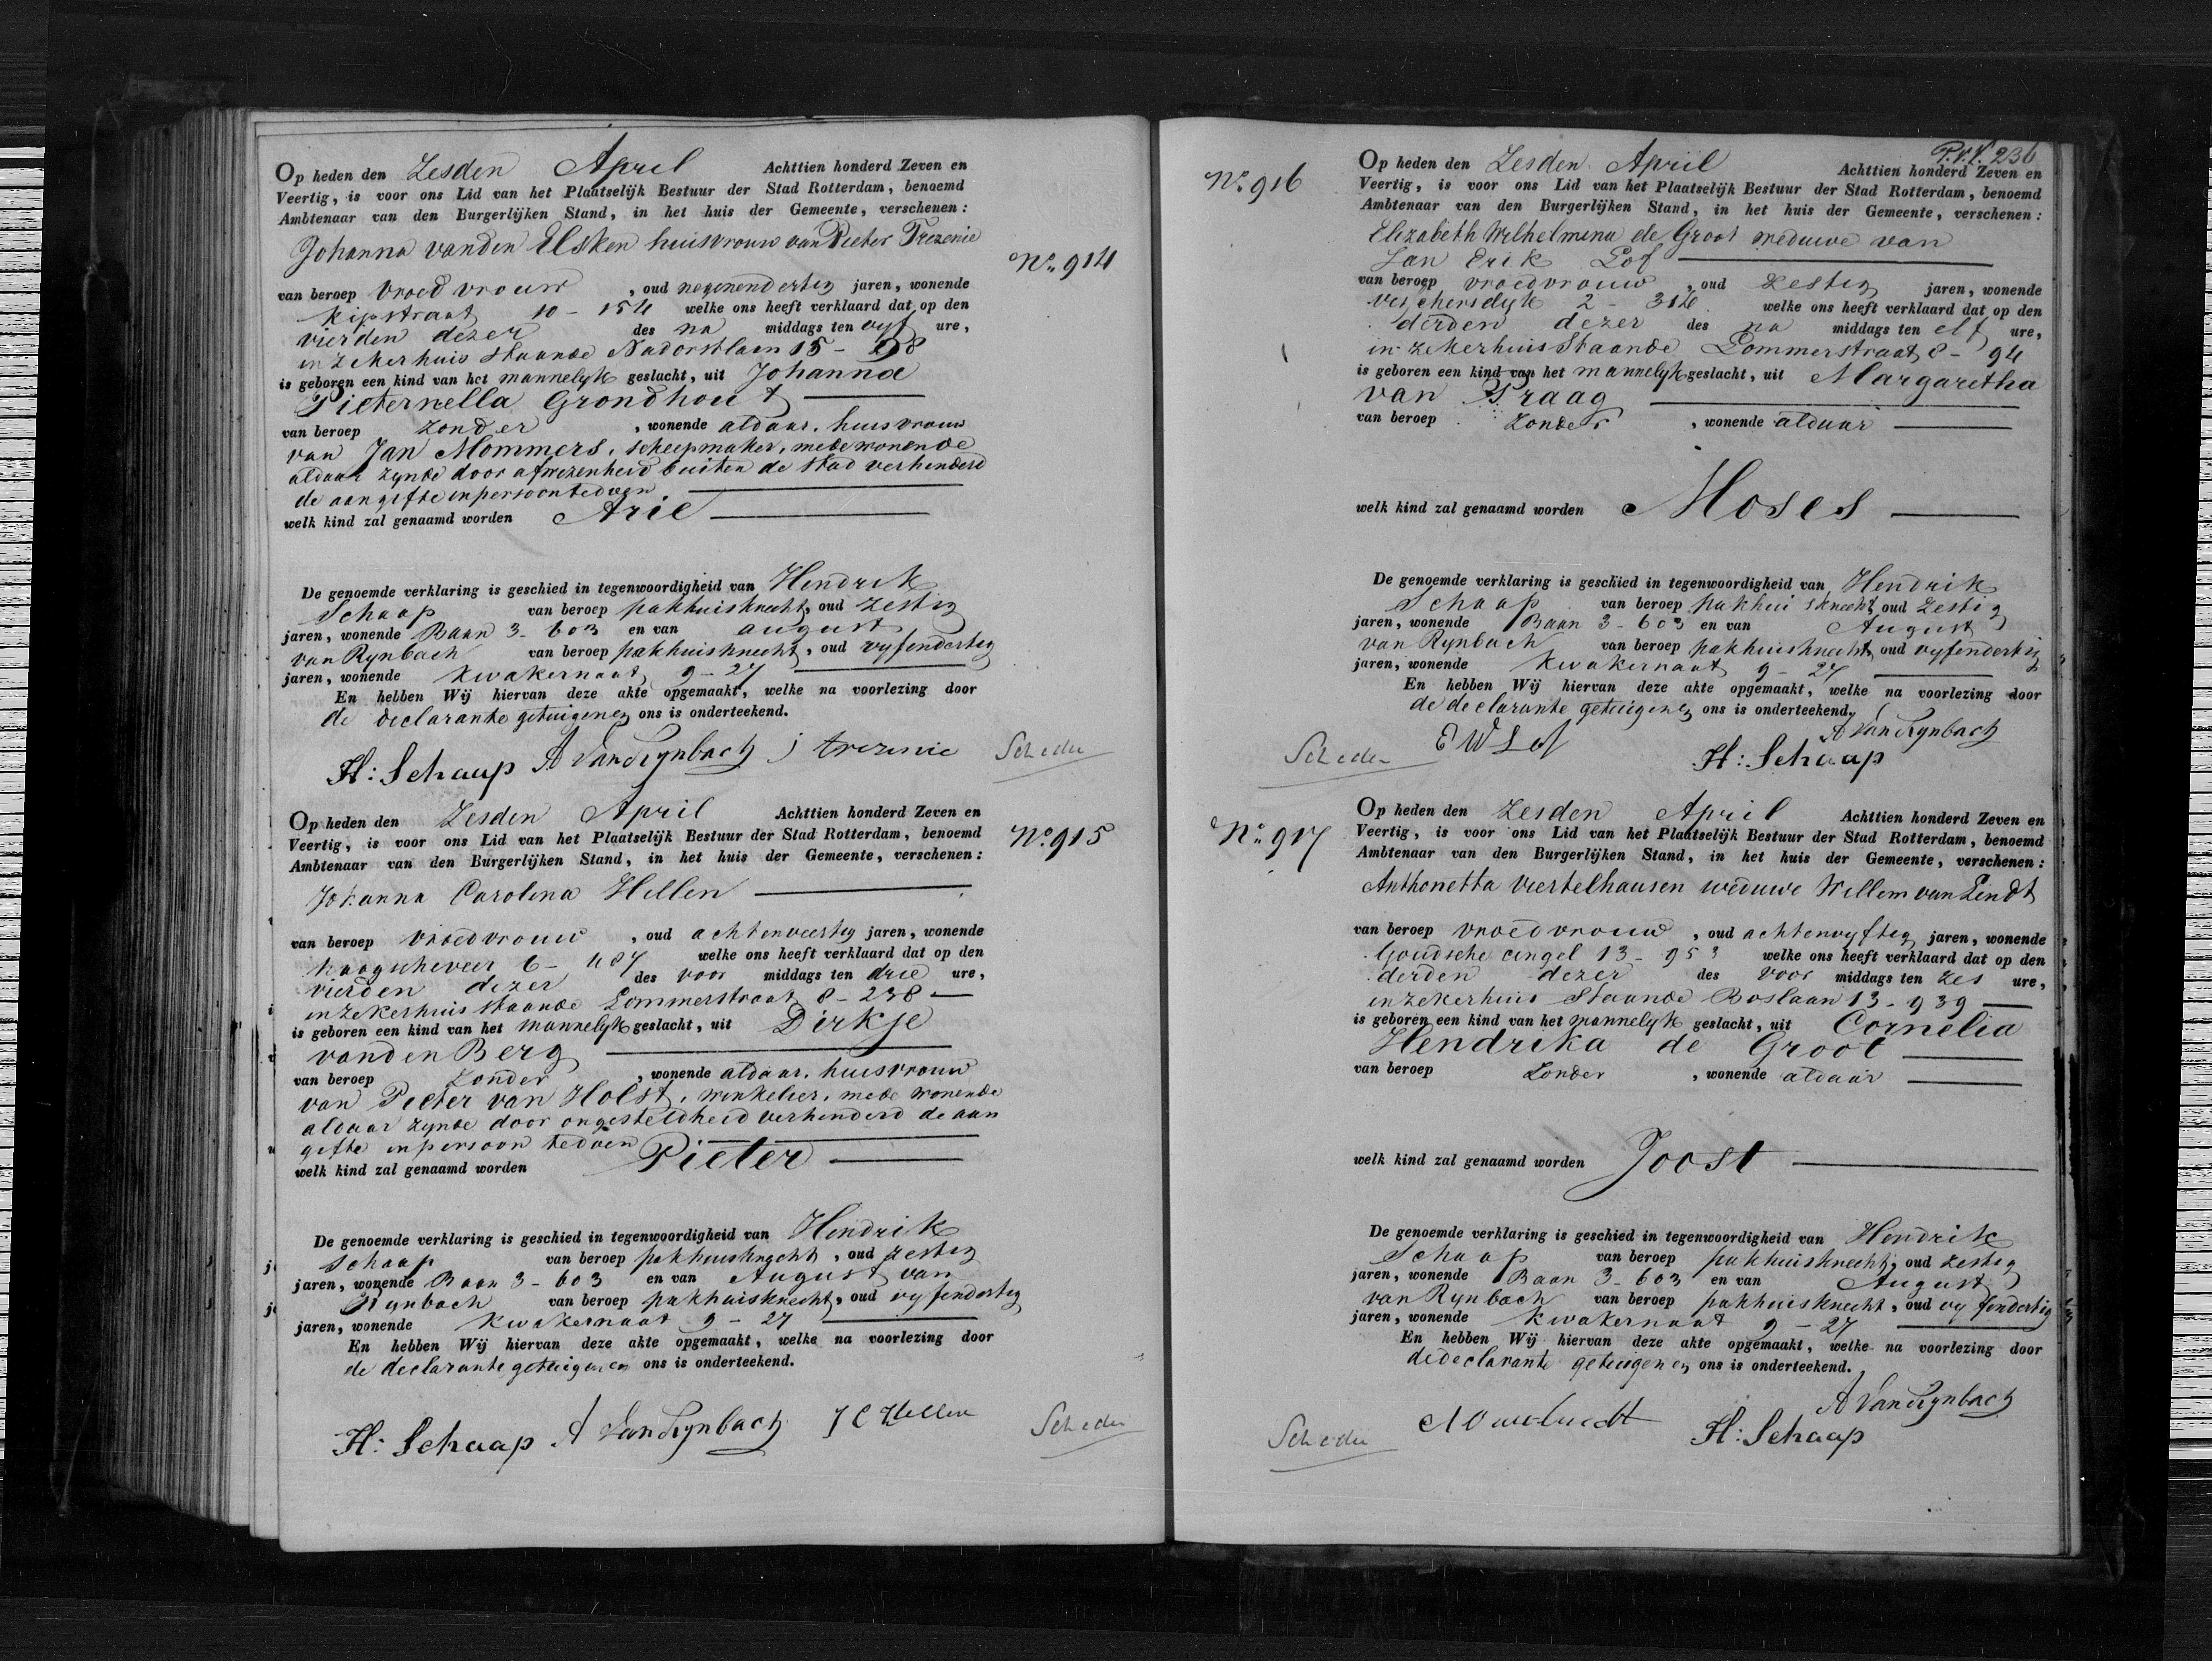 Op heden den Zesden April Achttien honderd Zeven en
Veertig, is voor ons Lid van het Plaatselijk Bestuur der Stad Rotterdam, benoemd
Ambtenaar van den Burgerlijken Stand, in het huis der Gemeente, verschenen:
Johanna van den Elsken huisvrouw van Pieter Trezenie
No 914
van beroep vroedvrouw, oud negenendertig jaren, wonende
Kipstraat 10 - 154 welke ons heeft verklaard dat op den
vierden dezer des na middags ten vyf ure,
in zeker huis staande Nadorstlaan 15 -
is geboren een kind van het mannelyk geslacht, uit Johanna
Pieternella Grondhout
van beroep zonder, wonende aldaar, huisvrouw
van Jan Mommers, scheepmaker, mede wonende
aldaar zynde door afwezenheid buiten de stad verhinderd
de aangifte in persoon te doen
welk kind zal genaamd worden Arie
De genoemde verklaring is geschied in tegenwoordigheid van Hendrik
Schaap van beroep pakhuisknecht, oud zestig
jaren, wonende Baan 3 - 603 en van august
van Rynbach van beroep pakhuisknecht, oud vyfendertig
jaren, wonende Kwakernaat 9 - 27
En hebben Wij hiervan deze akte opgemaakt, welke na voorlezing door
de declarante getuigen en ons is onderteekend.
H: Schaap A Van Rynbach j trezenie
Op heden den Zesden April Achttien honderd Zeven en
Veertig, is voor ons Lid van het Plaatselijk Bestuur der Stad Rotterdam, benoemd
No 915
Ambtenaar van den Burgerlijken Stand, in het huis der Gemeente, verschenen:
Johanna Carolina Hellen
van beroep vroedvrouw, oud achtenveertig jaren, wonende
haagscheveer 6 - 487 welke ons heeft verklaard dat op den
vierden dezer des voor middags ten drie ure,
in zeker huis staande Lommerstraat 8 - 238
is geboren een kind van het mannelyk geslacht, uit Dirkje
van den Berg
van beroep zonder, wonende aldaar, huisvrouw
van Pieter van Holst, winkelier, mede wonende
aldaar zynde door ongesteldheid verhinderd de aan
gifte in persoon te doen
welk kind zal genaamd worden Pieter
De genoemde verklaring is geschied in tegenwoordigheid van Hendrik
Schaap van beroep pakhuisknecht, oud zestig
jaren, wonende Baan 3 - 603 en van August van
Rynbach van beroep pakhuisknecht, oud vyfendertig
jaren, wonende Kwakernaat 9 - 27
En hebben Wij hiervan deze akte opgemaakt, welke na voorlezing door
de declarante getuigen en ons is onderteekend.
H: Schaap A Van Rynbach J C Hellen
P.V.V. 236
No 916
Op heden den Zesden April Achttien honderd Zeven en
Veertig, is voor ons Lid van het Plaatselijk Bestuur der Stad Rotterdam, benoemd
Ambtenaar van den Burgerlijken Stand, in het huis der Gemeente, verschenen:
Elizabeth Wilhelmina de Groot weduwe van
Jan Erik Lof
van beroep vroedvrouw, oud zestig jaren, wonende
visschersdyk 2 - welke ons heeft verklaard dat op den
derden dezer des na middags ten elf ure,
in zeker huis Staande Lommerstraat 8 - 94
is geboren een kind van het mannelyk geslacht, uit Margaretha
van Praag
van beroep Zonder, wonende aldaar
welk kind zal genaamd worden Moses
De genoemde verklaring is geschied in tegenwoordigheid van Hendrik
Schaap van beroep pakhuisknecht, oud zestig
jaren, wonende Baan 3 - 603 en van August
van Rynbach van beroep pakhuisknecht, oud vyfendertig
jaren, wonende Kwakernaat 9 - 27
En hebben Wij hiervan deze akte opgemaakt, welke na voorlezing door
de declarante getuigen en ons is onderteekend.
A Van Rynbach
E W Lof
H: Schaap
Op heden den Zesden April Achttien honderd Zeven en
No 917
Veertig, is voor ons Lid van het Plaatselijk Bestuur der Stad Rotterdam, benoemd
Ambtenaar van den Burgerlijken Stand, in het huis der Gemeente, verschenen:
Anthonetta Viertelhausen weduwe Willem van Lindt
van beroep vroedvrouw, oud achtenvyftig jaren, wonende
Goudsche cingel 13 - 953 welke ons heeft verklaard dat op den
derden dezer des voor middags ten zes ure,
in zeker huis Staande Boslaan 13 - 939
is geboren een kind van het mannelyk geslacht, uit Cornelia
Hendrika de Groot
van beroep Zonder, wonende aldaar
welk kind zal genaamd worden Joost
De genoemde verklaring is geschied in tegenwoordigheid van Hendrik
Schaap van beroep pakhuisknecht, oud zestig
jaren, wonende Baan 3 - 603 en van August
van Rynbach van beroep pakhuisknecht, oud vyfendertig
jaren, wonende Kwakernaat 9 - 27
En hebben Wij hiervan deze akte opgemaakt, welke na voorlezing door
de declarante getuigen en ons is onderteekend.
A Van Rynbach
H: Schaap